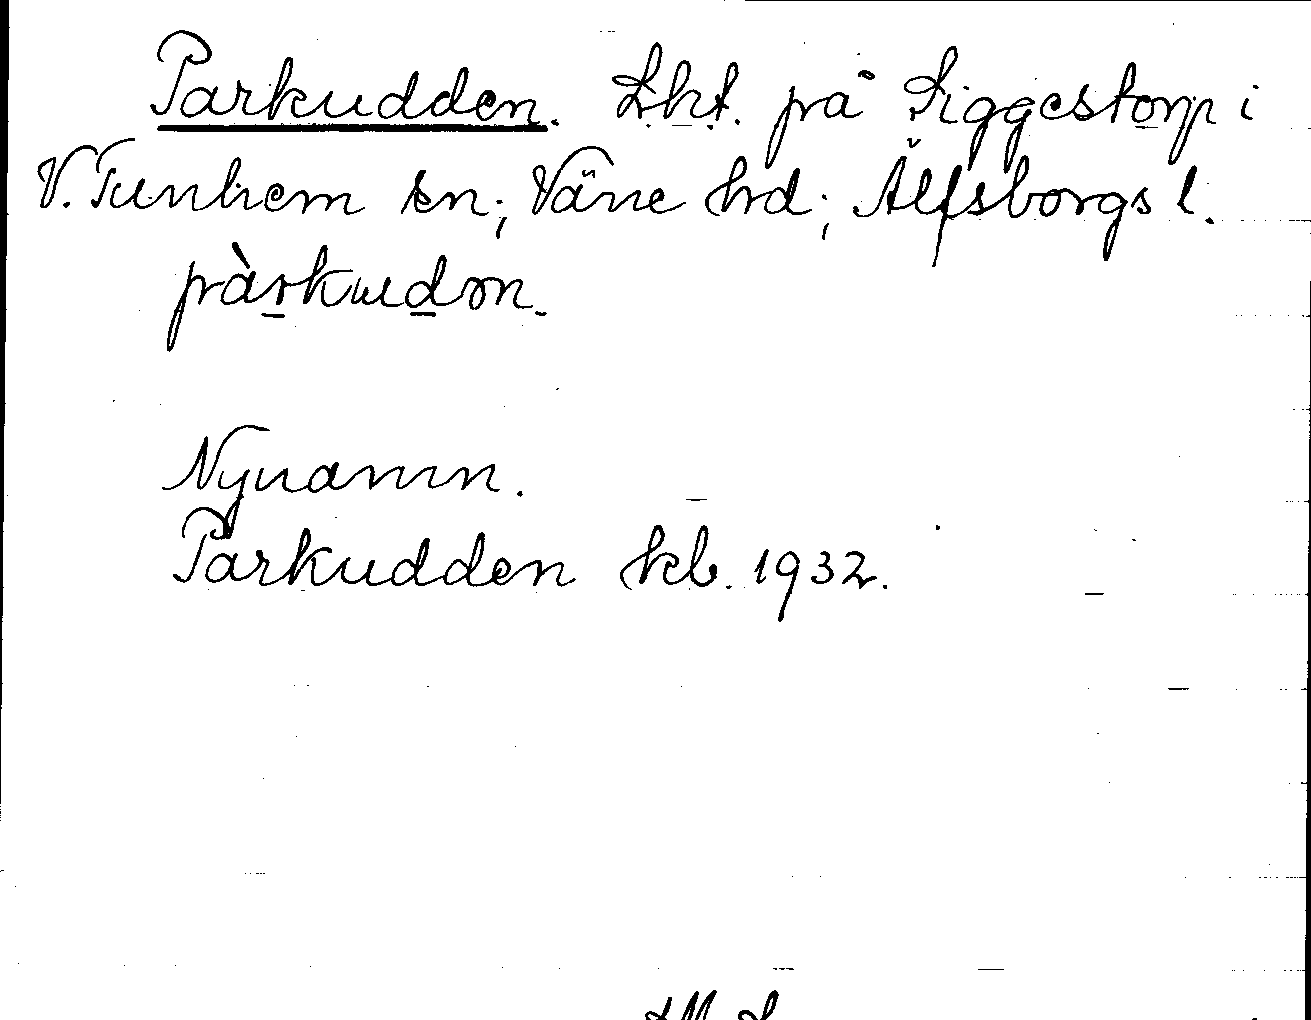 Parkudden. Lht. på Siggestorp i
V. Tunhem sn; Väne hrd; Älfsborgs l.
pàrkudən.
Nynamn.
Parkudden kb. 1932.